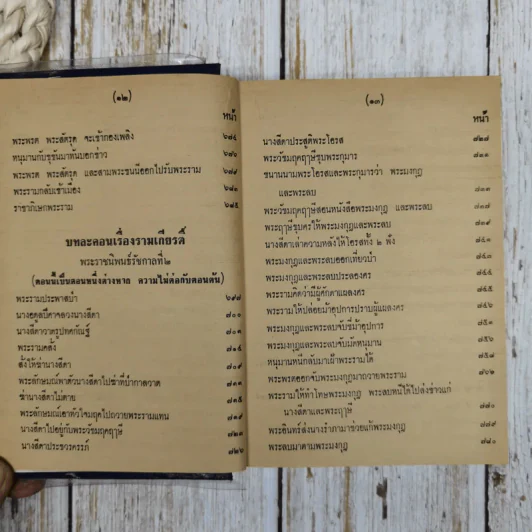 (๑๒)
หน้า
พระพรต พระสัตรุด จะเข้ากองเพลิง ๖๗๔
หนุมานกับขุขันมาทันบอกข่าว
พระพรต พระสัตรุด และสามพระชนนีออกไปรับพระราม ๖๗๗
พระรามกลับเข้าเมือง ๖๘๑
ราชาภิเษกพระราม ๖๘๕
บทละคอนเรื่องรามเกียรติ์
พระราชนิพนธ์รัชกาลที่ ๒
(ตอนนี้เป็นตอนหนึ่งต่างหาก ความไม่ต่อกับตอนต้น)
พระรามประพาสป่า ๖๙๗
นางอดูลปีศาจลวงนางสีดา ๗๐๐
นางสีดาวาดรูปทศกัณฐ์ ๗๐๓
พระรามคลั่ง
สั่งให้ฆ่านางสีดา ๗๐๙
พระลักษมณ์พาตัวนางสีดาไปฆ่าที่ป่ากาลวาต
ฆ่านางสีดาไม่ตาย
พระลักษมณ์เอาหัวใจมฤคไปถวายพระรามแทน
นางสีดาไปอยู่กับพระวัชมฤคฤๅษี
นางสีดาประชวรครรภ์
(๑๓)
หน้า
นางสีดาประสูติพระโอรส ๗๒๗
พระวัชมฤคฤๅษีชุบพระกุมาร
ขนานนามพระโอรสและพระกุมารว่า พระมงกุฎ
และพระลบ
พระวัชมฤคฤๅษีสอนหนังสือพระมงกุฎ และพระลบ
พระฤๅษีชุบศรให้พระมงกุฎและพระลบ
นางสีดาเล่าความหลังให้โอรสทั้ง ๒ ฟัง
พระมงกุฎและพระลบออกเที่ยวป่า
พระมงกุฎและพระลบประลองศร
พระรามคิดว่ามีผู้คิดตาแผลงศร
พระรามให้ปล่อยม้าอุปการปราบผู้แผลงศร
พระมงกุฎและพระลบจับขี่ม้าอุปการ
พระมงกุฎและพระลบจับมัดหนุมาน
หนุมานหนีกลับมาเฝ้าพระรามได้
พระพรตออกจับพระมงกุฎมาถวายพระราม
พระรามให้ทำโทษพระมงกุฎ พระลบหนีได้ไปส่งข่าวแก่
นางสีดาและพระฤๅษี
พระอินทร์ส่งนางรำภามาช่วยแก้พระมงกุฎ
พระลบมาตามพระมงกุฎ